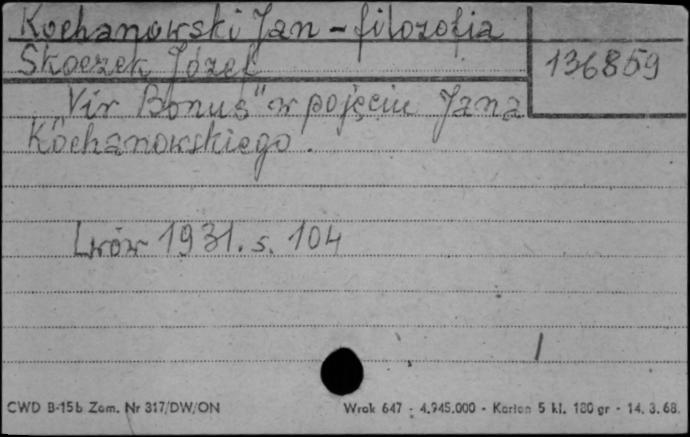 Kochanowski Jan - filozofia
Skoczek Józef
136859
"Vir Bonus" w pojęciu Jana
Kochanowskiego.
Lwów 1931. s. 104
CWD B-15b Zam. Nr 317/DW/ON
Wrak 647 - 4.945.000 - Karton 5 kl. 180 gr - 14. 3. 68.